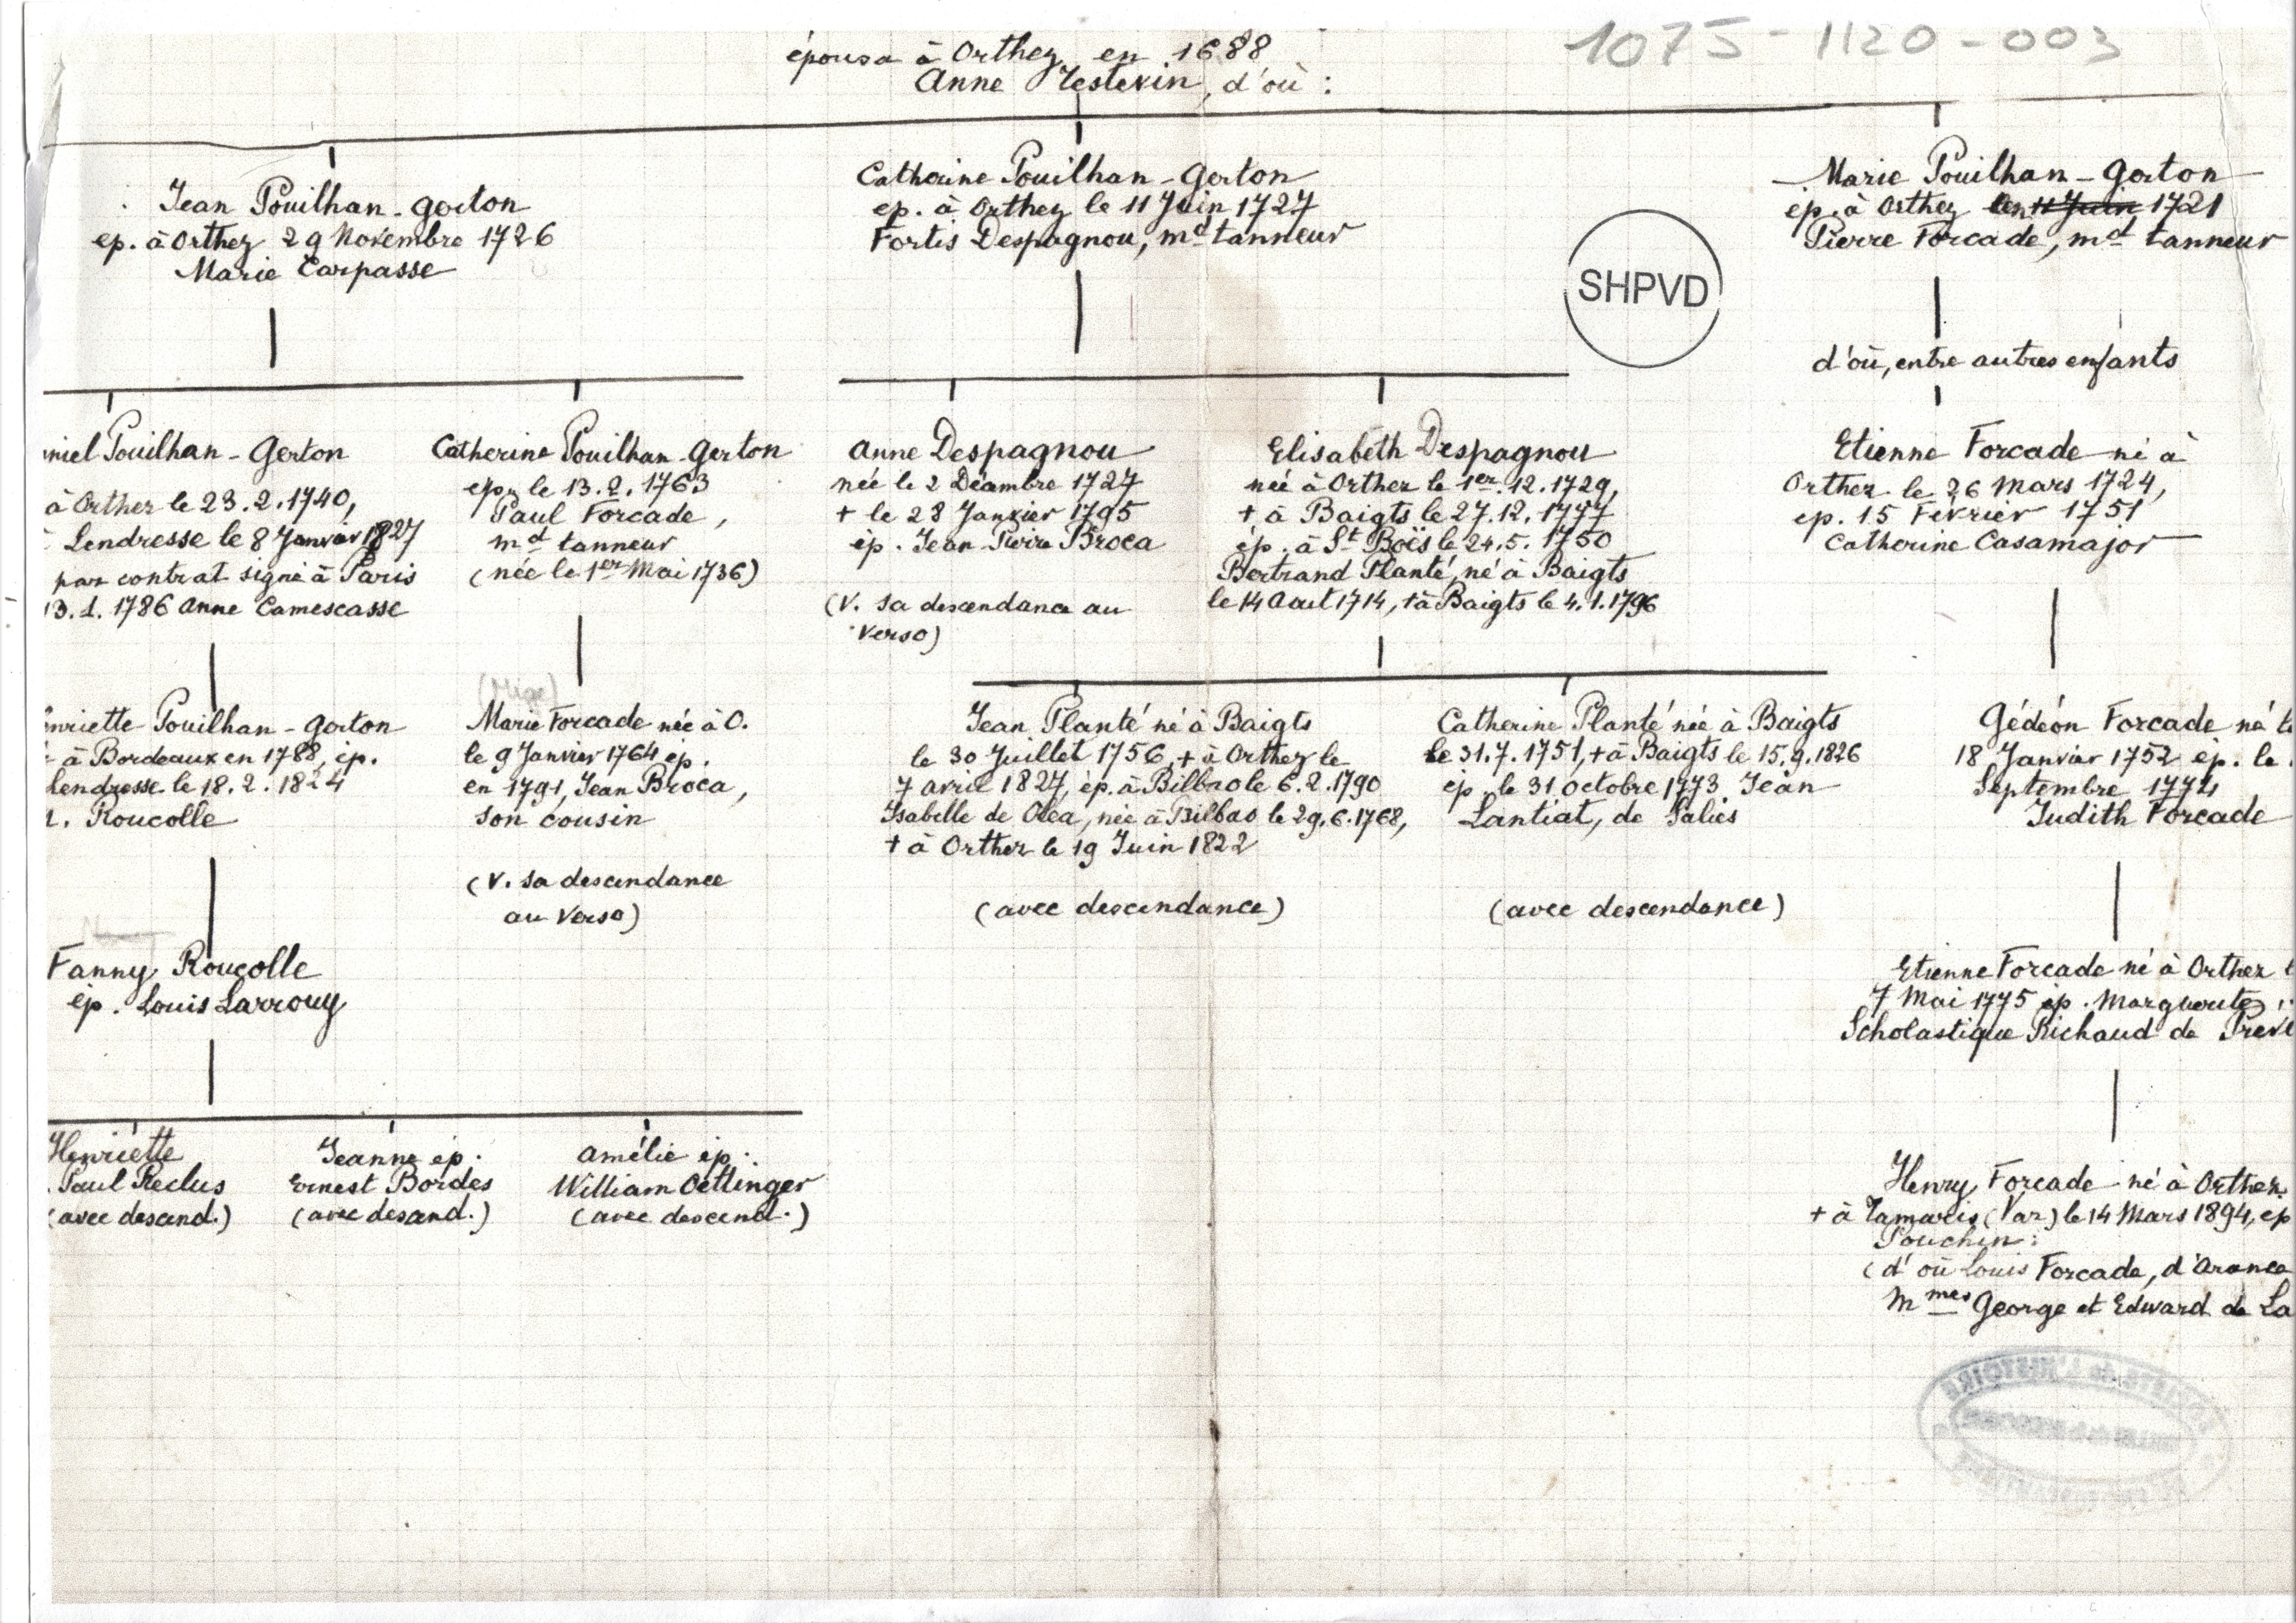 1075-1120-003
épousa à Orthez en 1688
Anne Testevin, d'où :
Jean Pouilhan-Gerton
ep. à Orthez 29 Novembre 1726
Marie Carpasse
Catherine Pouilhan-Gerton
ep. à Orthez le 11 Juin 1727
Fortis Despagnou, md tanneur
Marie Pouilhan-Gerton
ep. à Orthez 1721
Pierre Forcade, md tanneur
SHPVD
d'où, entre autres enfants
niel Pouilhan-Gerton
à Orthez le 23.2.1740,
Lendresse le 8 Janvier 1827
par contrat signé à Paris
13.1.1786 Anne Camescasse
Catherine Pouilhan-Gerton
ep. le 13.2.1763
Paul Forcade,
md tanneur
(née le 1er Mai 1736)
Anne Despagnou
née le 2 Décembre 1727
+ le 28 Janvier 1795
ép. Jean-Pierre Broca
(V. sa descendance au
verso)
Elisabeth Despagnou
née à Orthez le 1er.12.1729,
+ à Baigts le 27.12.1777
ép. à St Boës le 24.5.1750
Bertrand Planté, né à Baigts
le 14 Aout 1714, + à Baigts le 4.1.1796
Etienne Forcade né à
Orthez le 26 Mars 1724,
ep. 15 Février 1751
Catherine Casamajor
enriette Pouilhan-Gerton
à Bordeaux en 1788, ép.
Lendresse le 18.2.1824
Roucolle
Marie Forcade née à O.
le 9 Janvier 1764 ep.
en 1791, Jean Broca,
son cousin
(V. sa descendance
au verso)
Jean Planté né à Baigts
le 30 Juillet 1756, + à Orthez le
7 avril 1827, ép. à Bilbao le 6.2.1790
Isabelle de Olea, née à Bilbao le 29.6.1768,
+ à Orthez le 19 Juin 1822
(avec descendance)
Catherine Planté née à Baigts
le 31.7.1751, + à Baigts le 15.9.1826
ép. le 31 octobre 1773 Jean
Lantiat, de Salies
(avec descendance)
Gédéon Forcade né
18 Janvier 1752 ép. le
Septembre 1774
Judith Forcade
Fanny Roucolle
ép. Louis Larrouy
Etienne Forcade né à Orthez
7 Mai 1775 ép. Marguerite
Scholastique Richaud de
Henriette
Paul Reclus
(avec descend.)
Jeanne ép.
Ernest Bordes
(avec descend.)
Amélie ép.
William Oettinger
(avec descend.)
Henry Forcade né à Orthez
+ à Tamaris (Var) le 14 Mars 1894, ep
Pouchin:
(d'où Louis Forcade, d'Arance
Mmes George et Edward de La